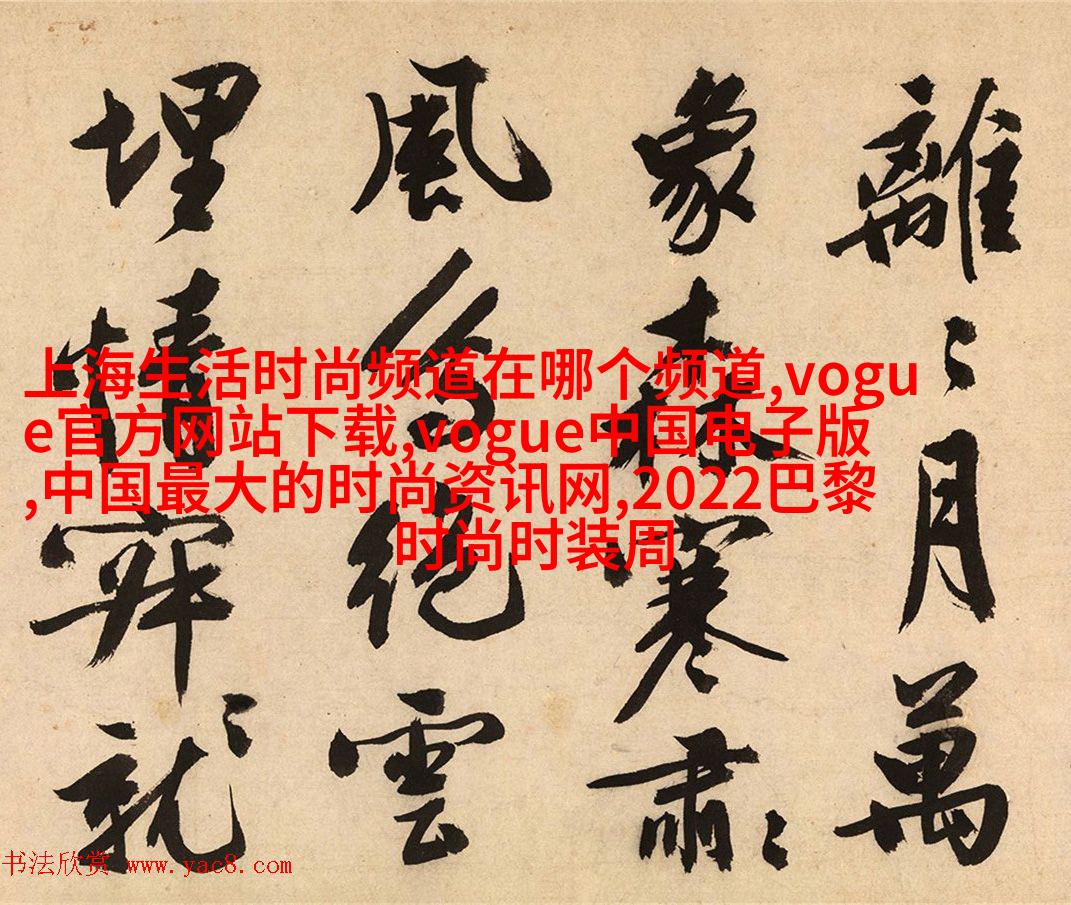 離〻月萬
象森寒肅〻
風絕雲
埋情就〻
上海生活时尚频道在哪个频道,vogu
e官方网站下载,vogue中国电子版
,中国最大的时尚资讯网,2022巴黎
时尚时装周
书法欣赏 www.yac8.com